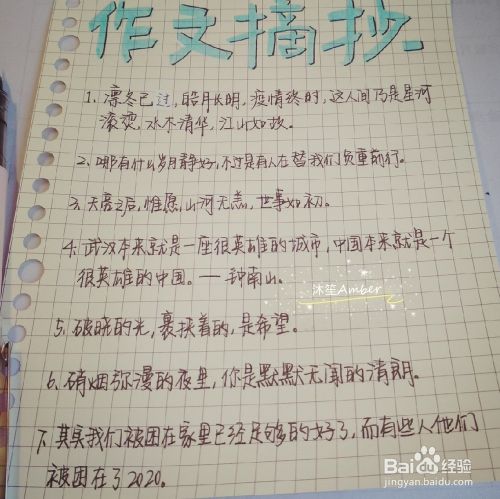 作文摘抄
1. 凛冬已过,皓月长明,疫情终时,这人间乃是星河
滚烫,水木清华,江山如故。
2. 哪有什么岁月静好,不过是有人在替我们负重前行。
3. 大疫之后,惟愿,山河无恙,世事如初。
4. 武汉本来就是一座很英雄的城市,中国本来就是一个
很英雄的中国。——钟南山。
沐笙Amber
5. 破晓的光,裹挟着的,是希望。
6. 硝烟弥漫的夜里,你是默默无闻的清朗。
7. 其实我们被困在家里已经足够的好了,而有些人他们
被困在了2020。
Baidu经验
jingyan.baidu.com